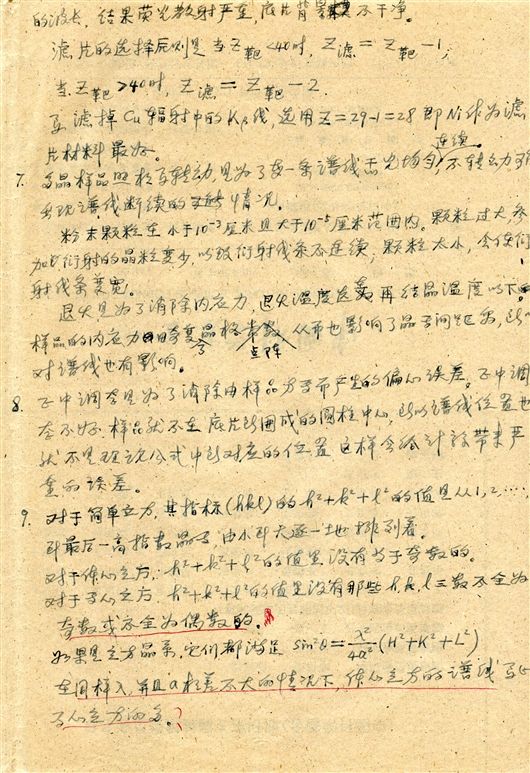 的波长，结果荧光散射严重，底片背景不干净。
滤片的选择原则是当Z靶<40时，Z滤=Z靶-1；
当Z靶>40时，Z滤=Z靶-2
要滤掉Cu辐射中的Kβ线，选用Z=29-1=28即Ni作为滤
片材料最好。
7. 多晶样品照相要转动，是为了每一条谱线感光均匀连续，不转动
出现谱线断续的情况。
粉末颗粒在小于10⁻³厘米且大于10⁻⁵厘米范围内。颗粒过大参
加衍射的晶粒变少，以致衍射线条不连续，颗粒太小，会使衍
射线条变宽。
退火是为了消除内应力，退火温度选再结晶温度以下
样品的内应力会畸变晶格点阵，从而也影响了晶面间距离，所以
对谱线也有影响。
8. 正中调整是为了消除由样品而产生的偏心误差。正中调
整不好样品就不在底片所围成的圆柱中心，所以谱线位置也
就不是理论公式中所对应的位置这样会给计算带来严
重的误差。
9. 对于简单立方，其指标(hkl)的h²+k²+l²的值是从1,2……
到最后一高指数晶面由小到大逐一地排列着。
对于体心立方，h²+k²+l²的值里没有等于奇数的。
对于面心立方h²+k²+l²的值里没有那些h,k,l三数不全为
奇数或不全为偶数的。
如果是立方晶系，它们都满足 sin²θ=λ²/4a²(H²+K²+L²)
在同样λ，并且a相差不大的情况下，体心立方的谱线要比
面心立方的多。